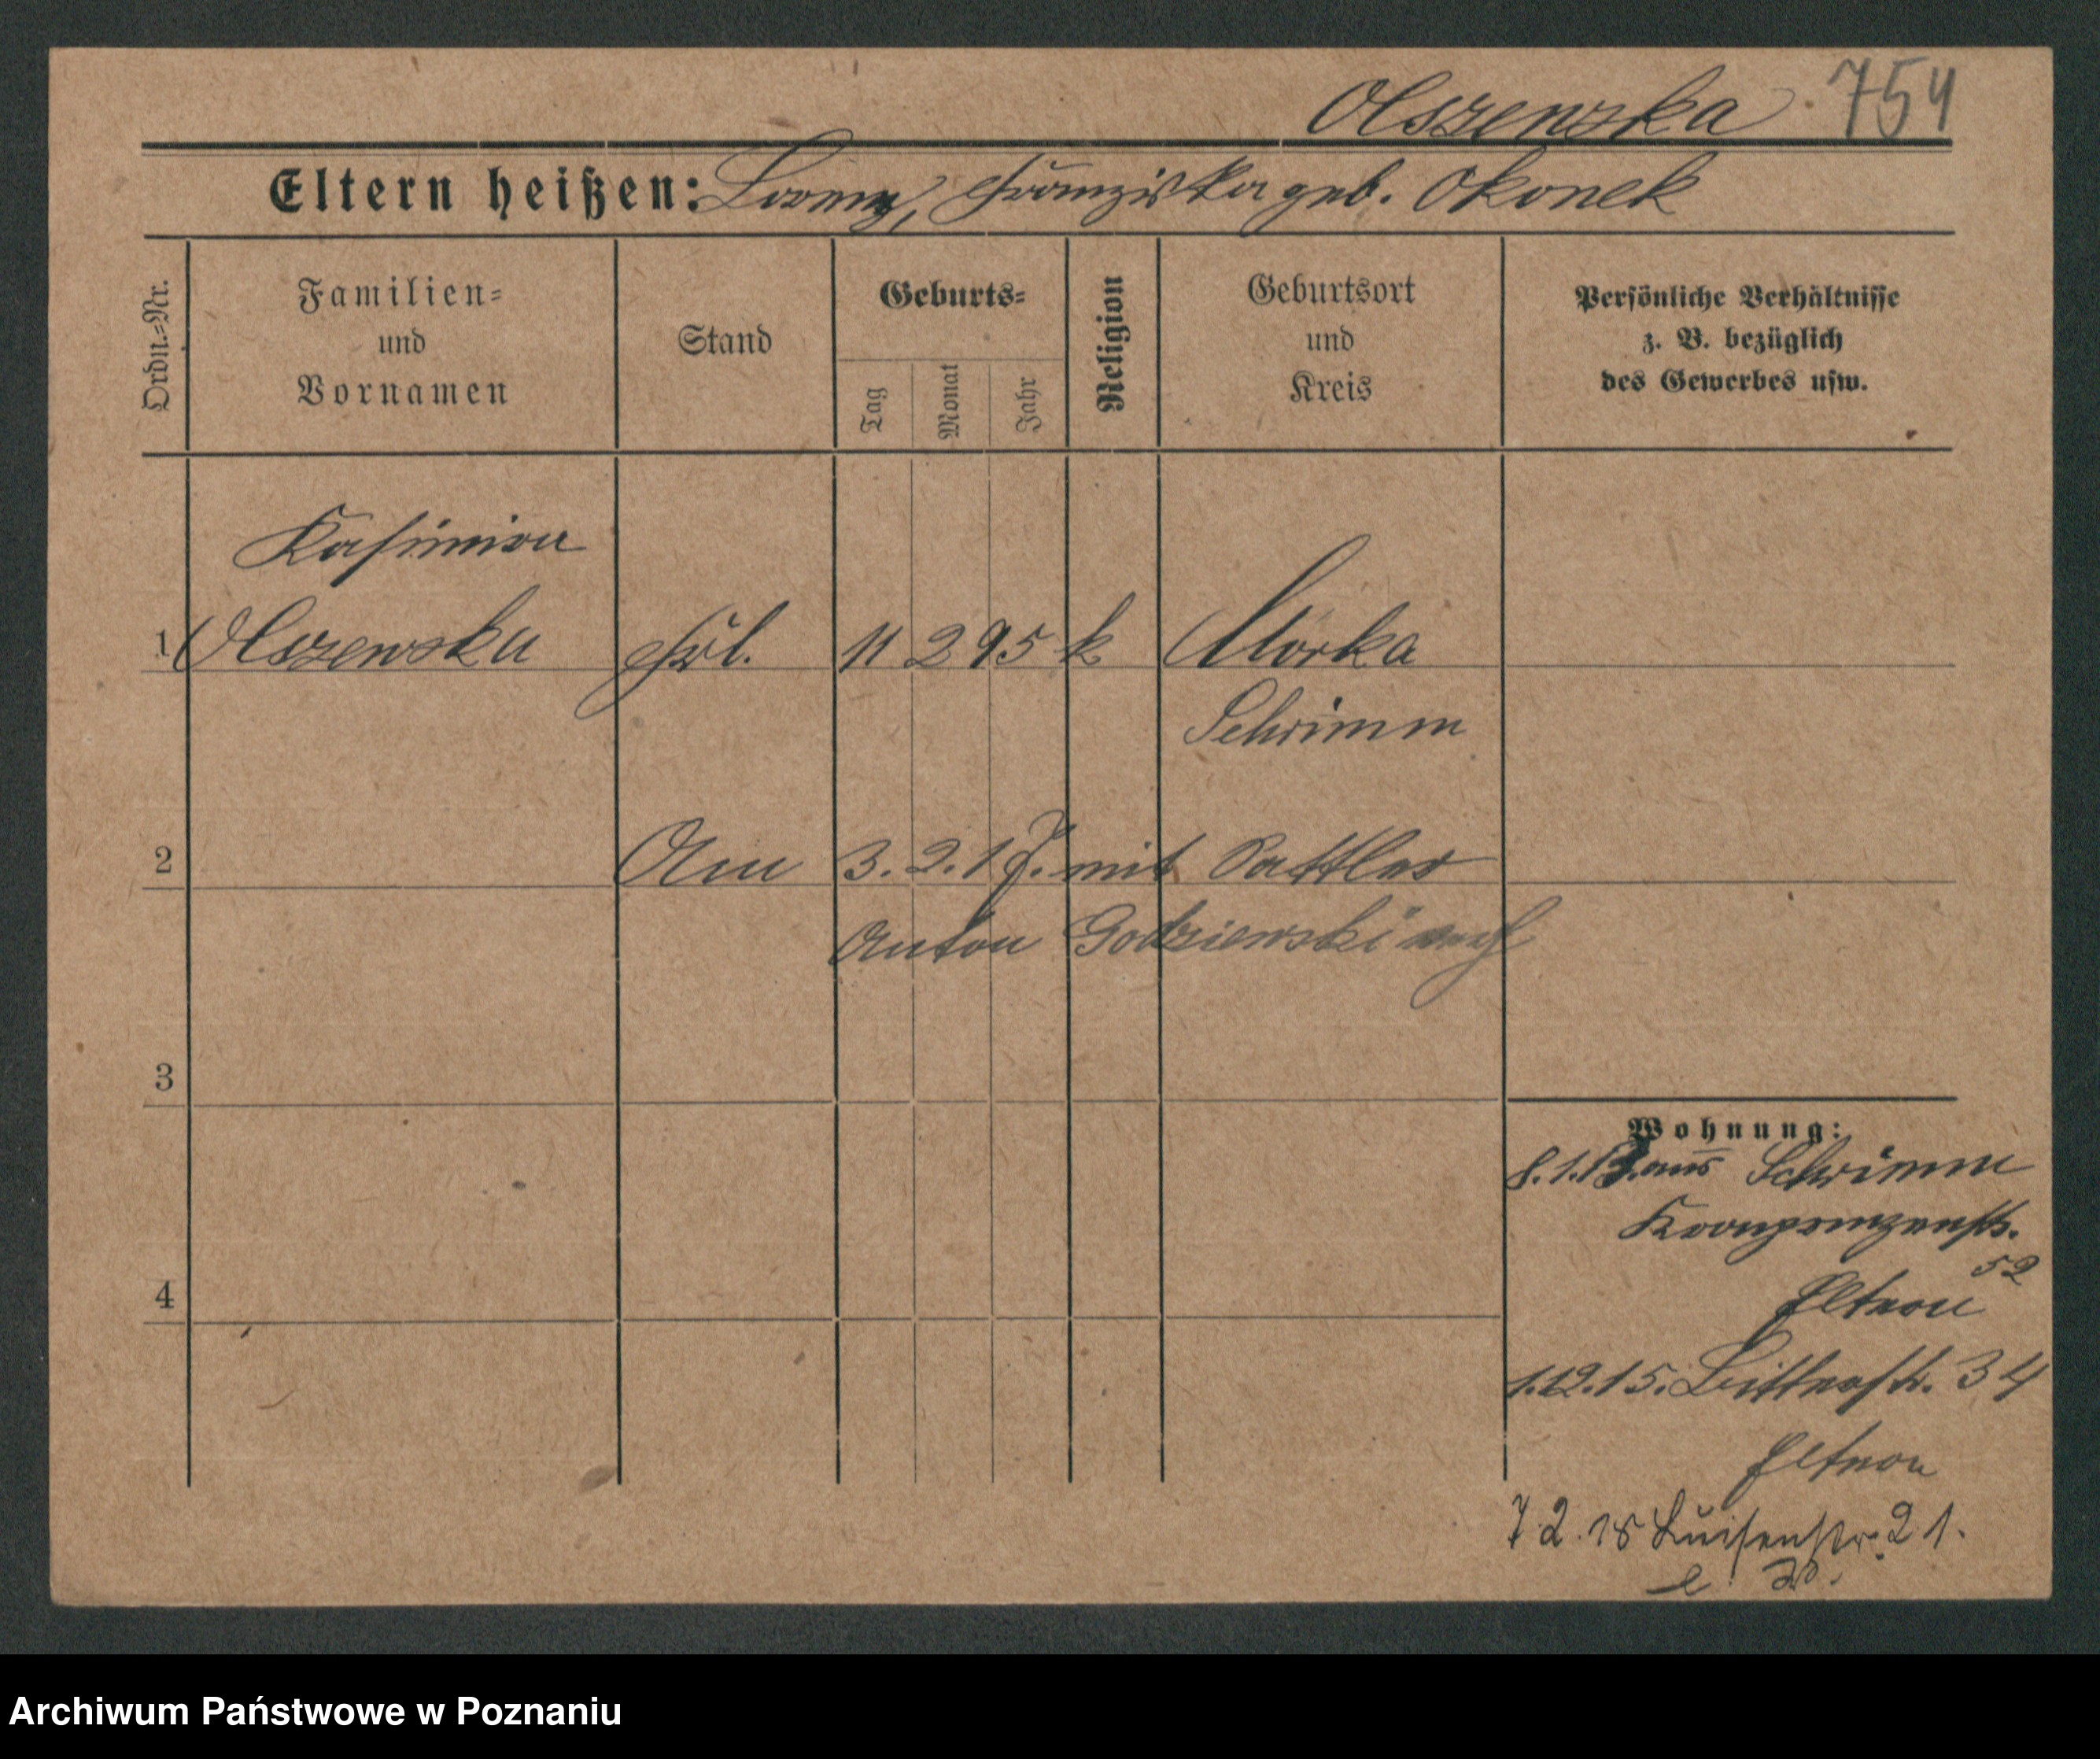 Olszewska 754
Eltern heißen: Lorenz, Franziska geb. Okonek
Ordn.-Nr.
Familien-
und
Vornamen
Stand
Geburts-
Tag
Monat
Jahr
Religion
Geburtsort
und
Kreis
Persönliche Verhältnisse
z. B. bezüglich
des Gewerbes usw.
Kasimira
1 Olszewska Frl. 11 2 95 k Morka
Schrimm
2 Am 3.2.17. mit Sattler
Anton Godziewski
3
Wohnung:
8.1.13. aus Schrimm
Kronprinzenstr.
52
Eltern
4
1.12.15. Bitterstr. 34
Eltern
7.2.18 Luisenstr. 21.
Archiwum Państwowe w Poznaniu